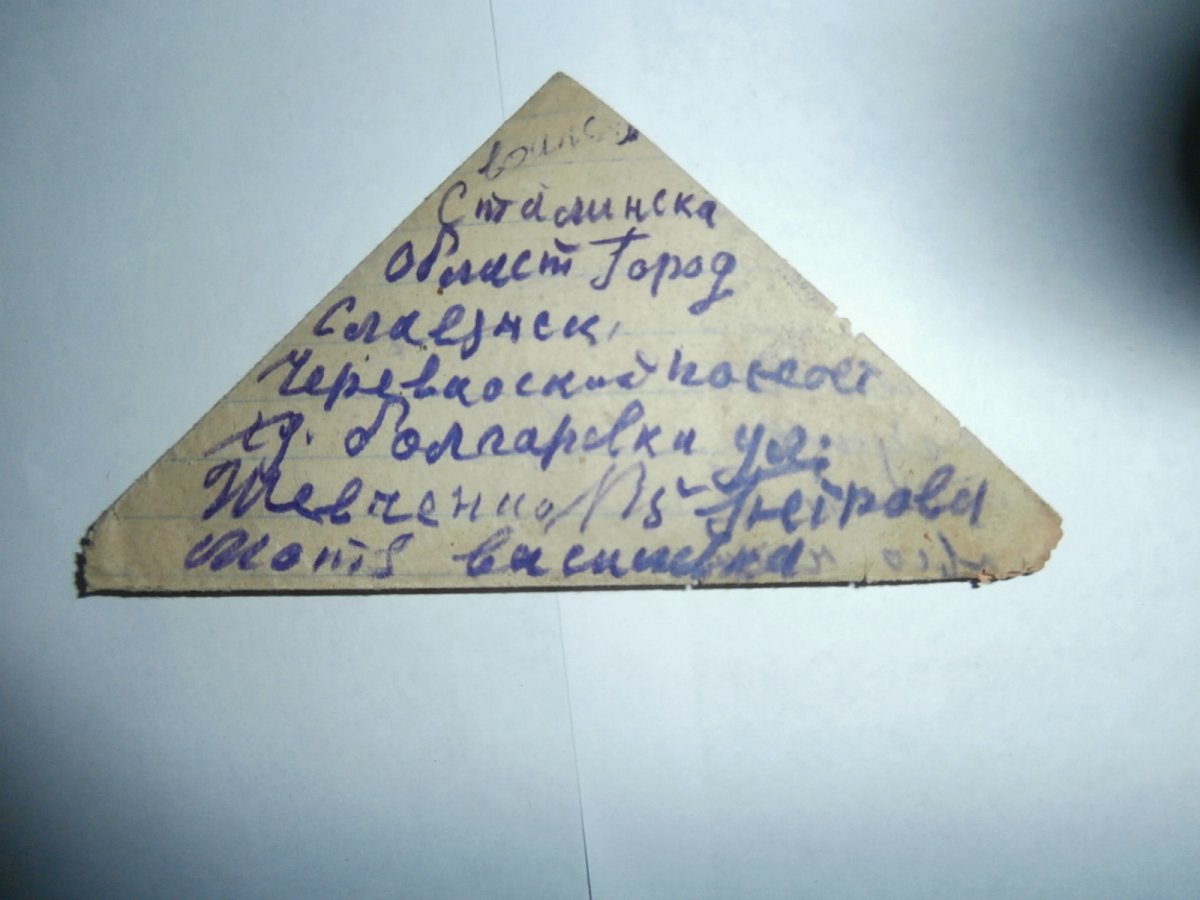 воинск
Сталинска
област Город
Славянск,
Черевкоский
хд. болгаровка ул.
Шевченко №5 Петрова
Мотя василевна